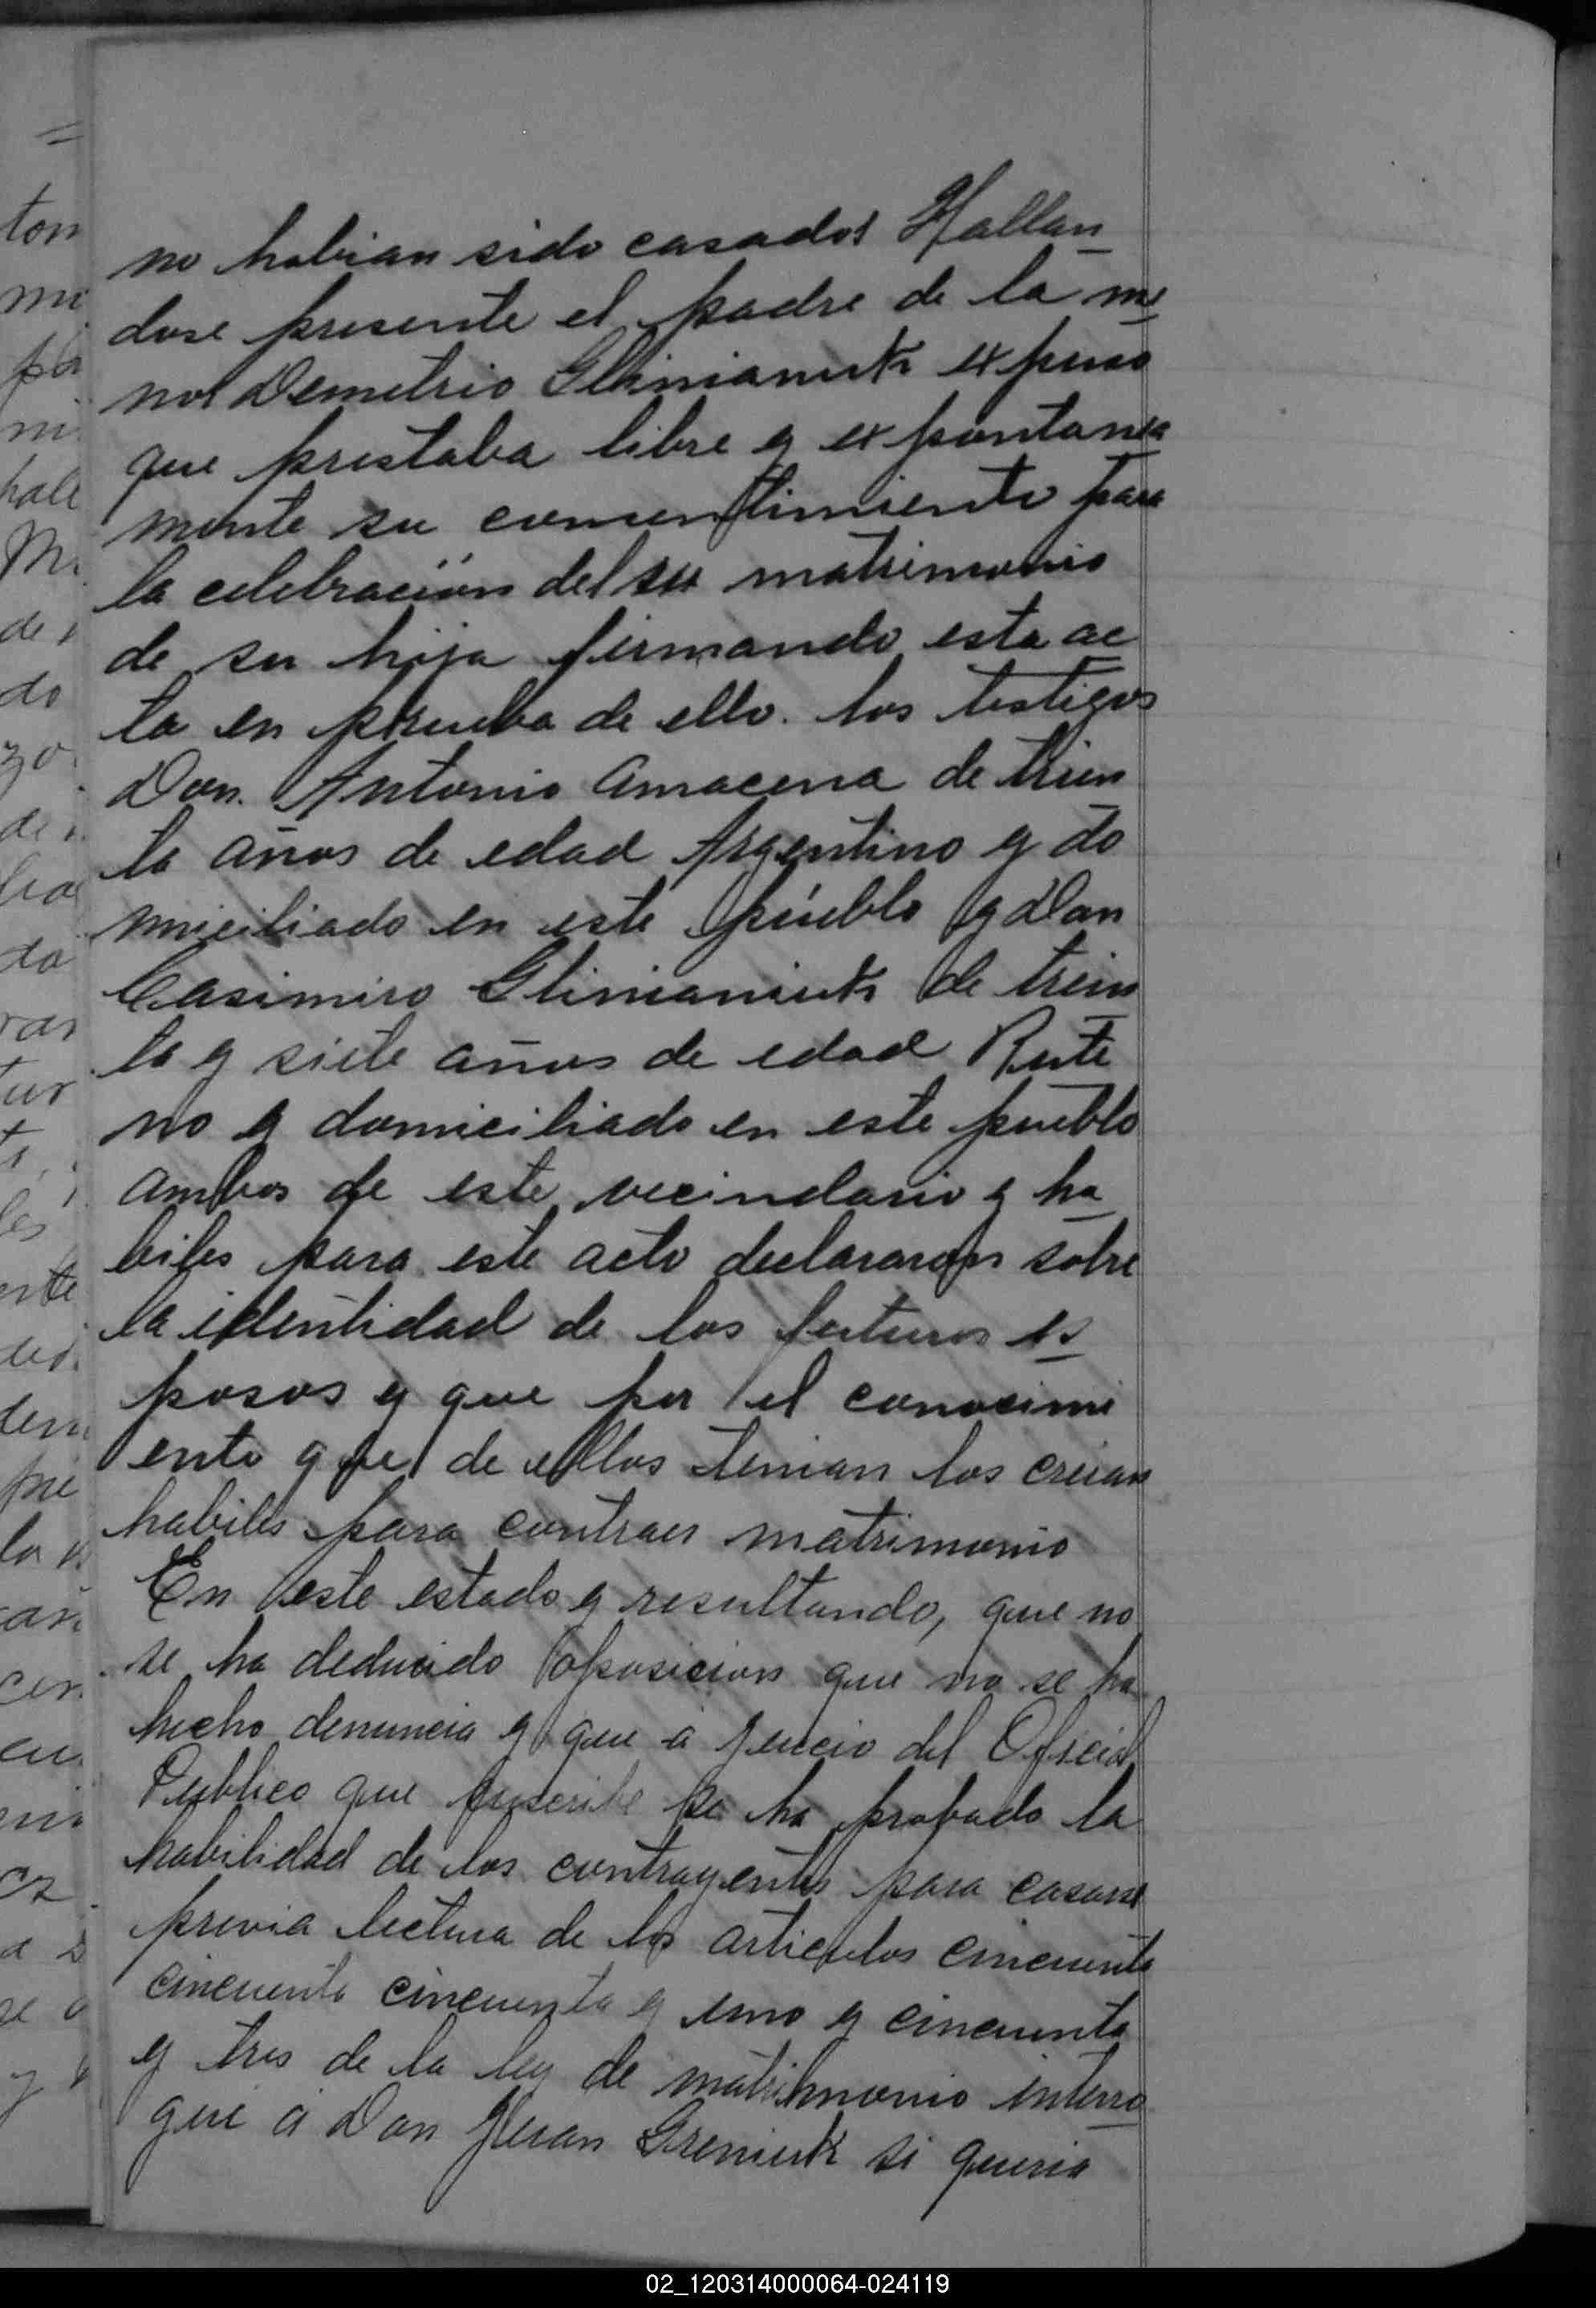 no habian sido casados Hallan
dose presente el padre de la me
nor Demetrio Glinianuk expuso
que prestaba libre y expontanea
mente su consentimiento para
la celebración del su matrimonio
de su hija firmando esta ac
ta en prueba de ello. los testigos
Don. Antonio Amacena de trein
ta años de edad Argentino y do
miciliado en este pueblo y Don
Casimiro Glinianiuk de trein
ta y siete años de edad Rute
no y domiciliado en este pueblo
ambos de este vecindario y ha
biles para este acto declararon sobre
la identidad de los futuros es
posos y que por el conocimi
ento que de ellos tenian los creian
habiles para contraer matrimonio
En este estado y resultando, que no
se ha deducido oposicion que no se ha
hecho denuncia y que á juicio del Oficial
Publico que suscribe se ha probado la
habilidad de los contrayentes para casarse
previa lectura de los articulos cincuenta
cincuenta cincuenta y uno y cincuenta
y tres de la ley de matrimonio interro
gué á Don Juan Greniuk si queria
02_120314000064-024119